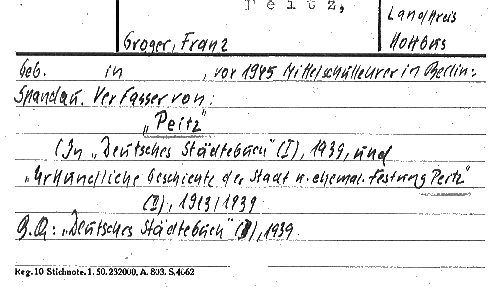 Peitz,
Landkreis
Kottbus
Groger, Franz
Geb. in , vor 1945 Mittelschullehrer in Berlin-
Spandau. Verfasser von:
„Peitz"
(In „Deutsches Städtebuch" (I), 1939, und
„Urkundliche Geschichte der Stadt u. ehemal. Festung Peitz"
(II), 1913/1939
B.Qu: „Deutsches Städtebuch" (I), 1939
Reg. 10 Stichnote. 1. 50. 232000. A. 803. S. 4662